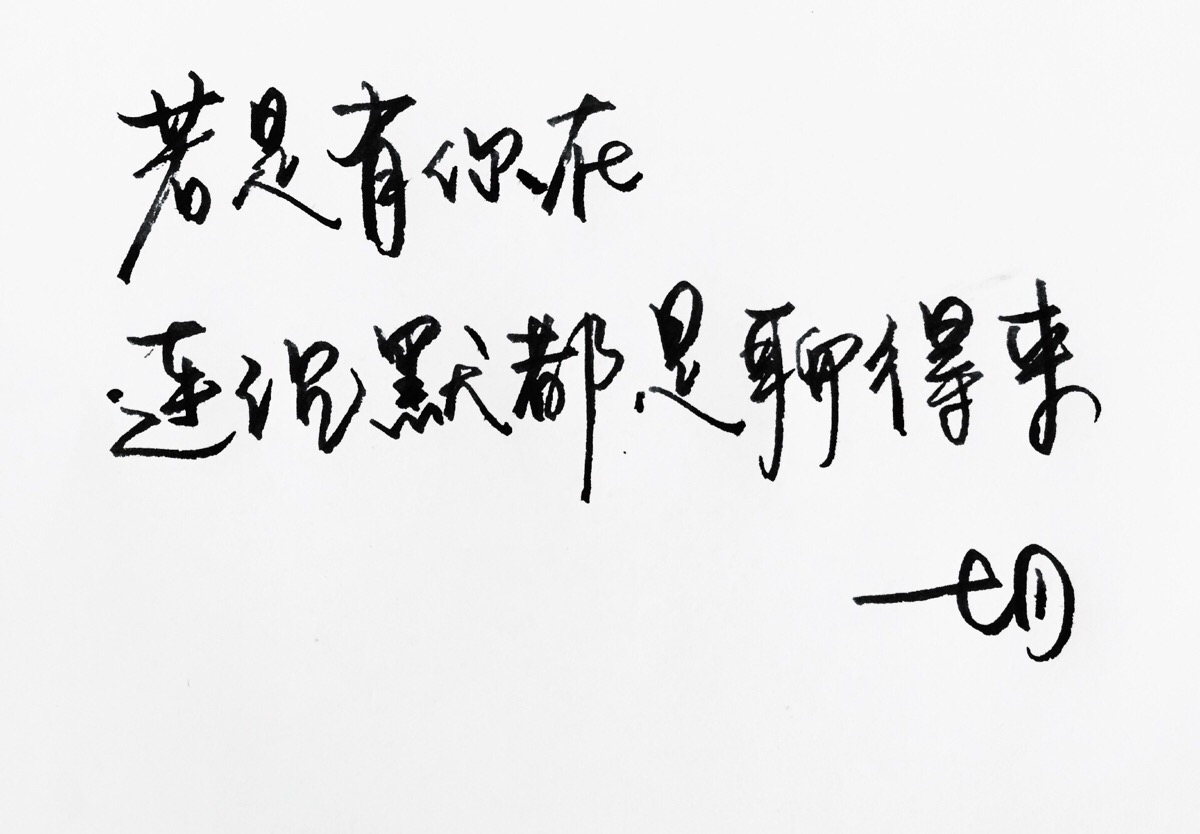 若是有你在
连沉默都是聊得来